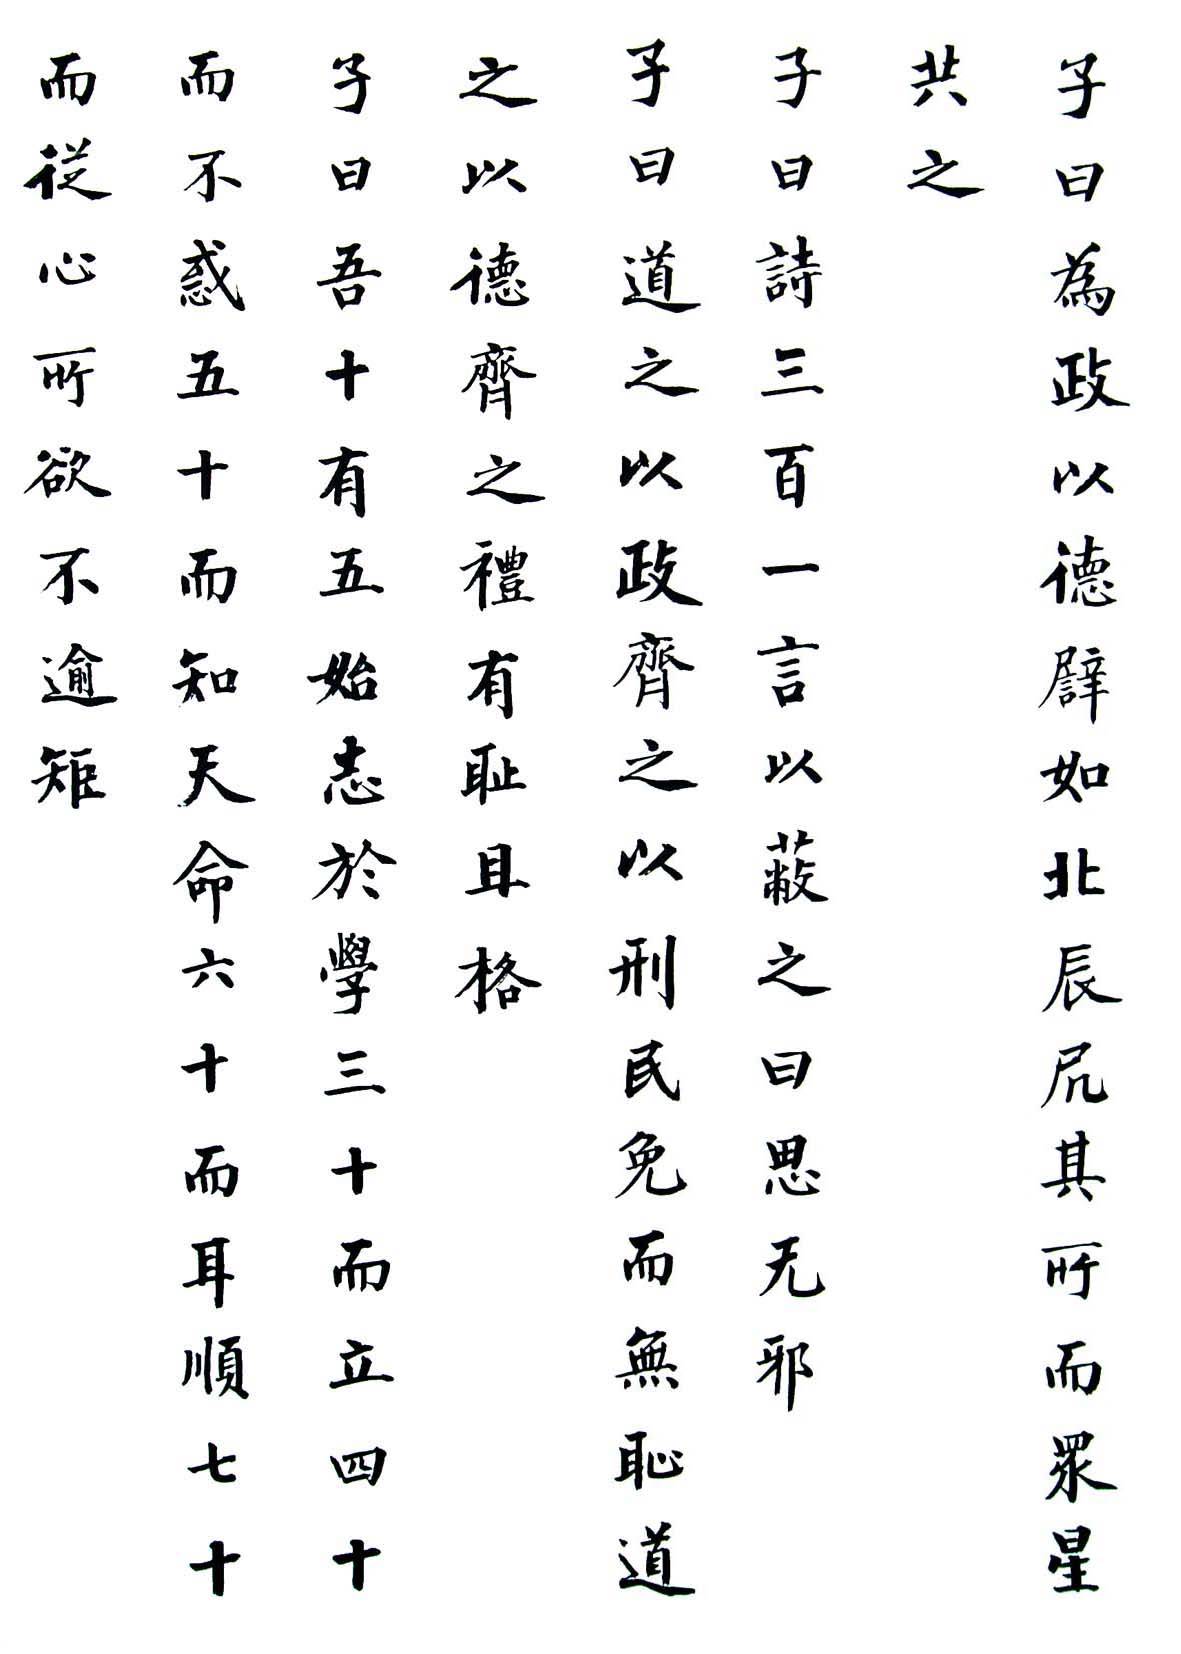 子曰為政以德譬如北辰凥其所而眾星
共之
子曰詩三百一言以蔽之曰思无邪
子曰道之以政齊之以刑民免而無恥道
之以德齊之禮有耻且格
子曰吾十有五始志於學三十而立四十
而不惑五十而知天命六十而耳順七十
而従心所欲不逾矩